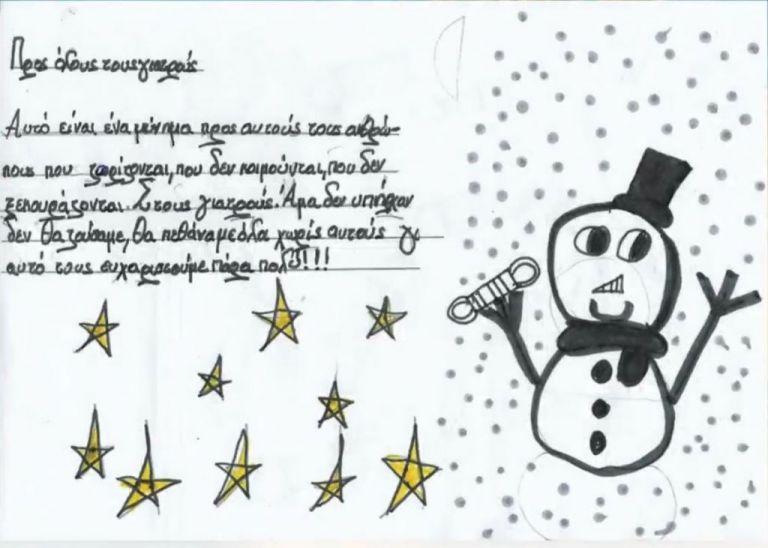 Προς όλους τους γιατρούς
Αυτό είναι ένα μήνημα προς αυτούς τους ανθρώ-
πους που ζορίζονται, που δεν κοιμούνται, που δεν
ξεκουράζονται. Στους γιατρούς. Άμα δεν υπήρχαν
δεν θα ζούσαμε, θα πεθάναμε όλα χωρίς αυτούς γι
αυτό τους ευχαριστούμε πάρα πολύ!!!